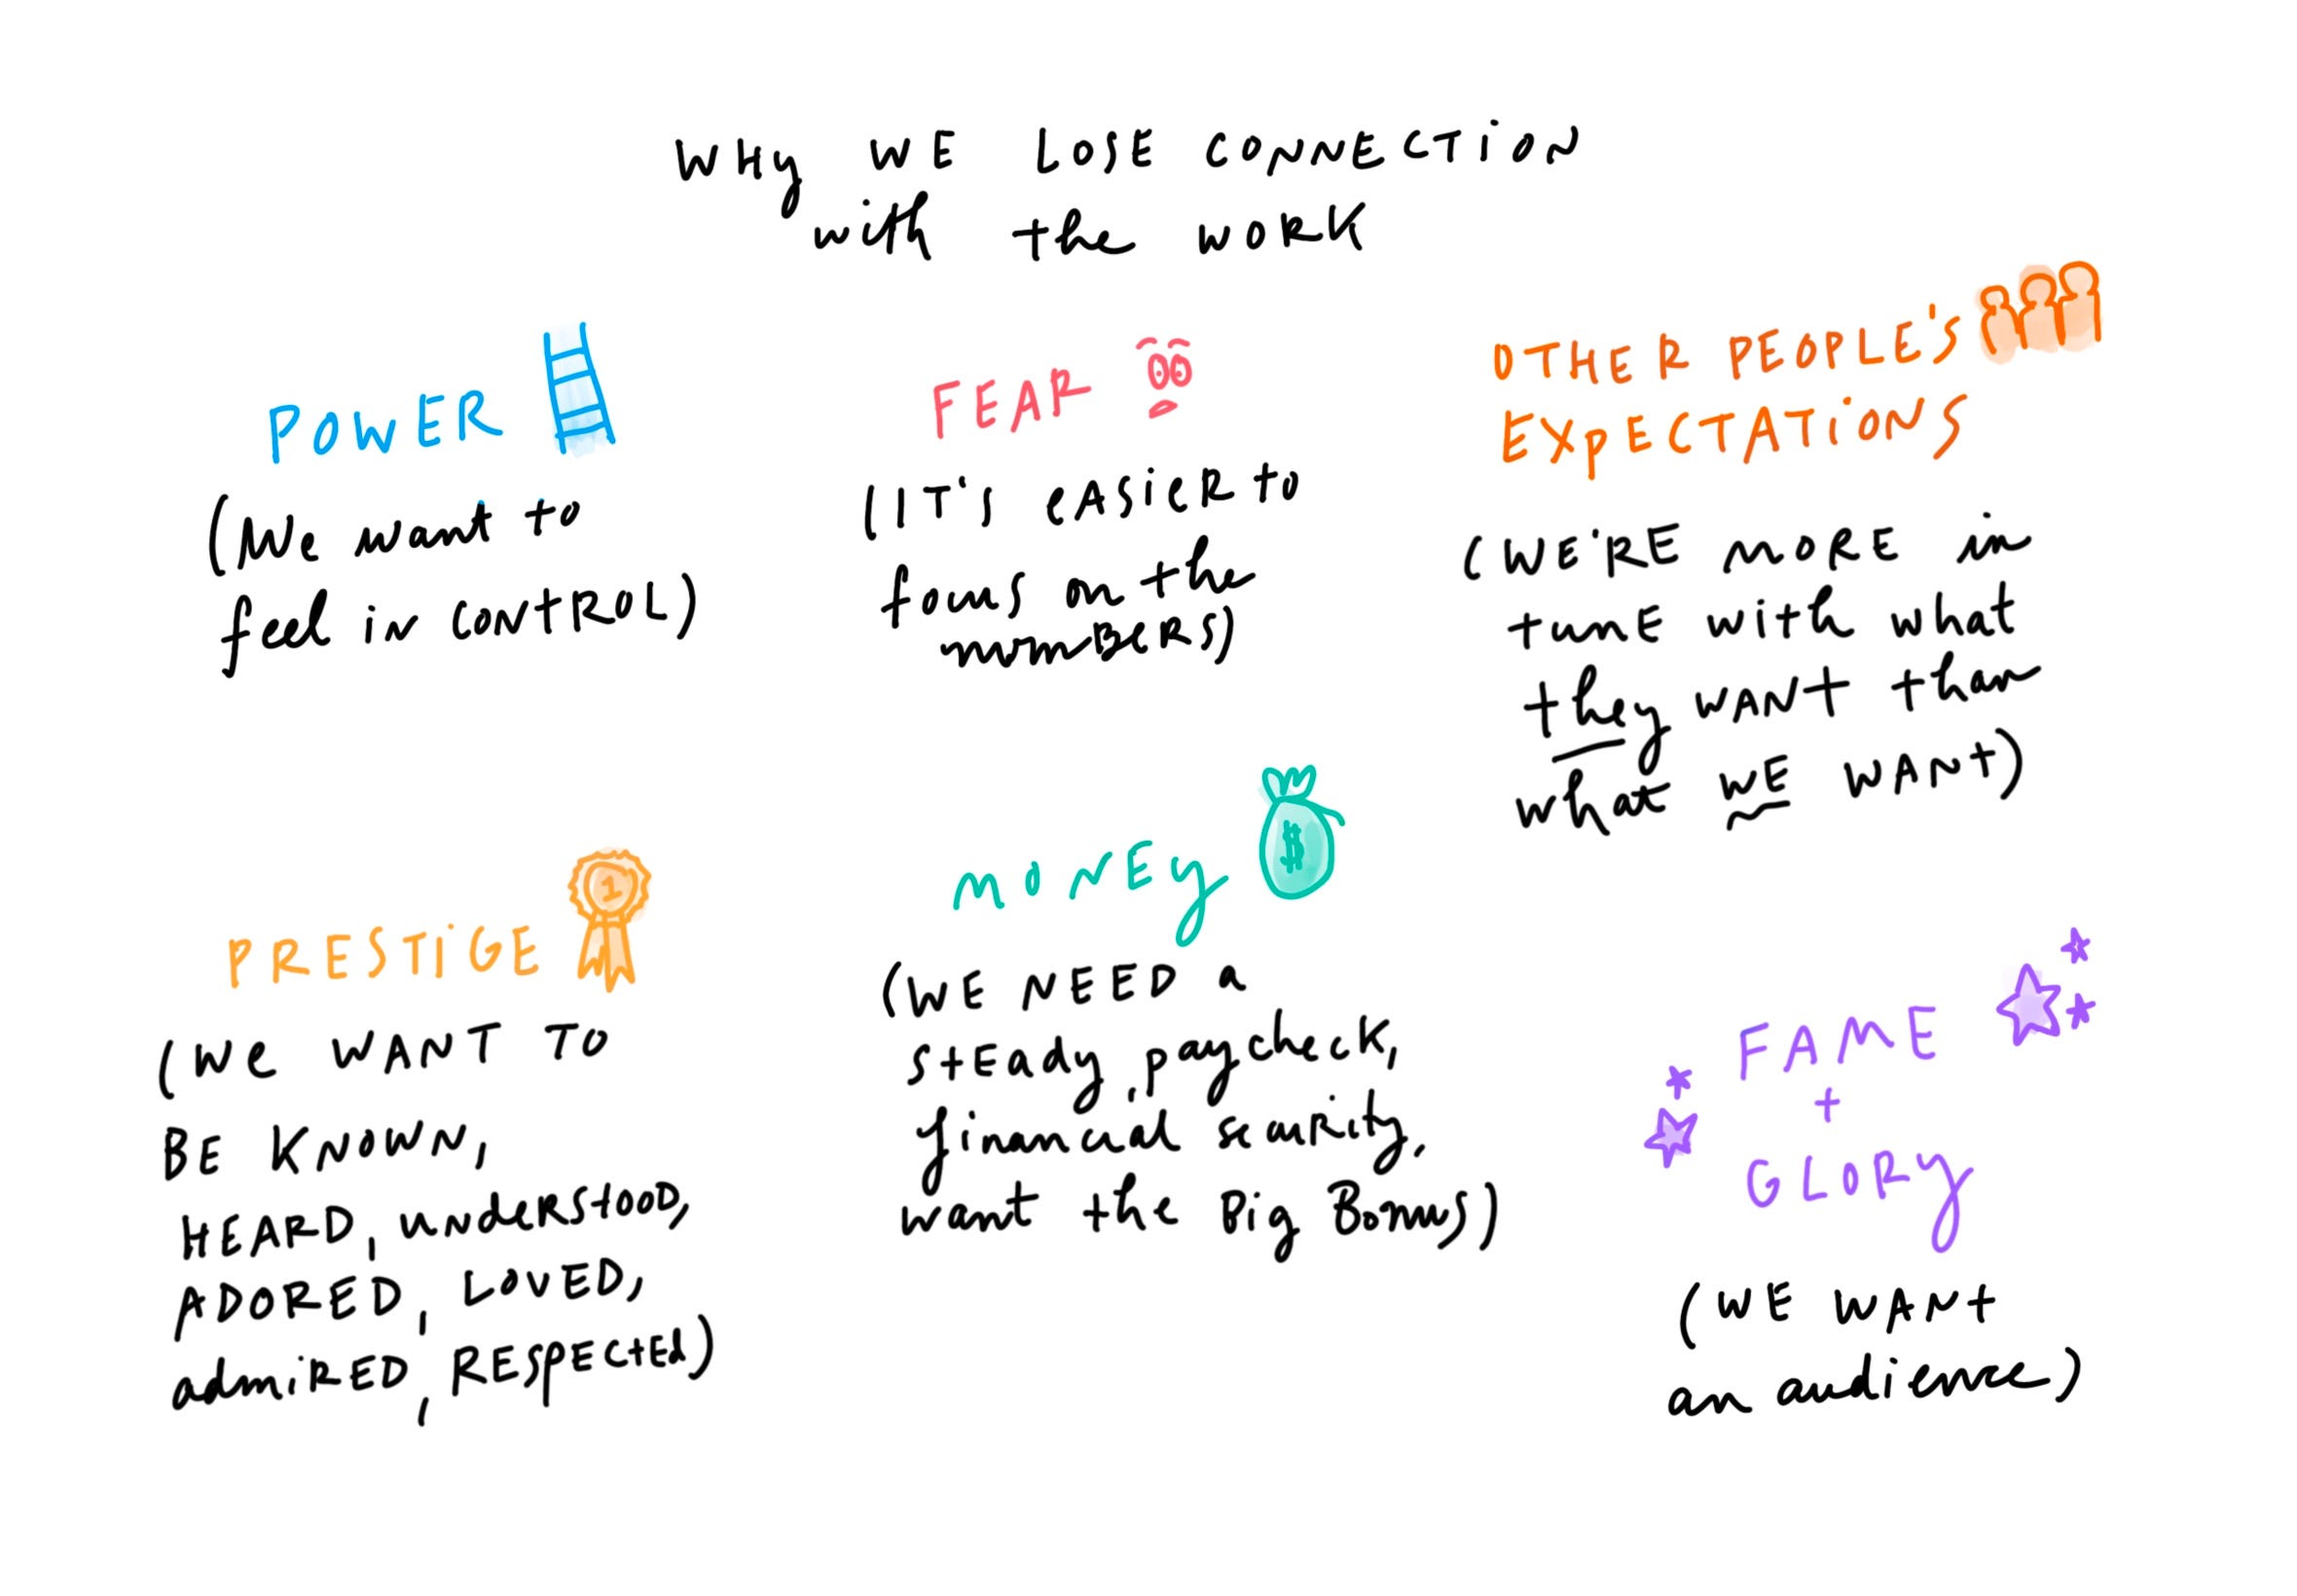 WHY WE LOSE CONNECTION
with the WORK
POWER
(We want to
feel in CONTROL)
FEAR
(IT'S EASIER to
focus on the
numBERS)
OTHER PEOPLE'S
EXPECTATIONS
(WE'RE MORE in
tune with what
they WANT than
what WE WANT)
PRESTIGE
1
(We WANT TO
BE KNOWN,
HEARD, UNDERSTOOD,
ADORED, LOVED,
admiRED, RESPECTEd)
MONEY
$
(WE NEED a
STEADY paycheck,
financial security,
want the Big Bonus)
FAME
+
GLORY
(WE WANT
an audience)